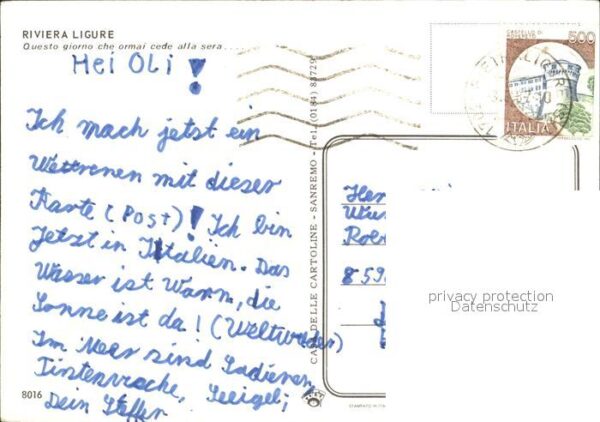 RIVIERA LIGURE
Questo giorno che ormai cede alla sera....
Hei Oli!
Ich mach jetzt ein
Wettrenen mit dieser
Karte (Post)! Ich bin
Jetzt in Ittalien. Das
Wasser ist Warm, die
Sonne ist da! (Weltwuder)
Im Meer sind Sadienen,
Tintenrache, Seeigel;
Dein Steffen
8016
CASA DELLE CARTOLINE - SANREMO - Tel. (0184) 83729
CASTELLO DI
ROVERETO
500
ITALIA
Her
Wu
859
privacy protection
Datenschutz